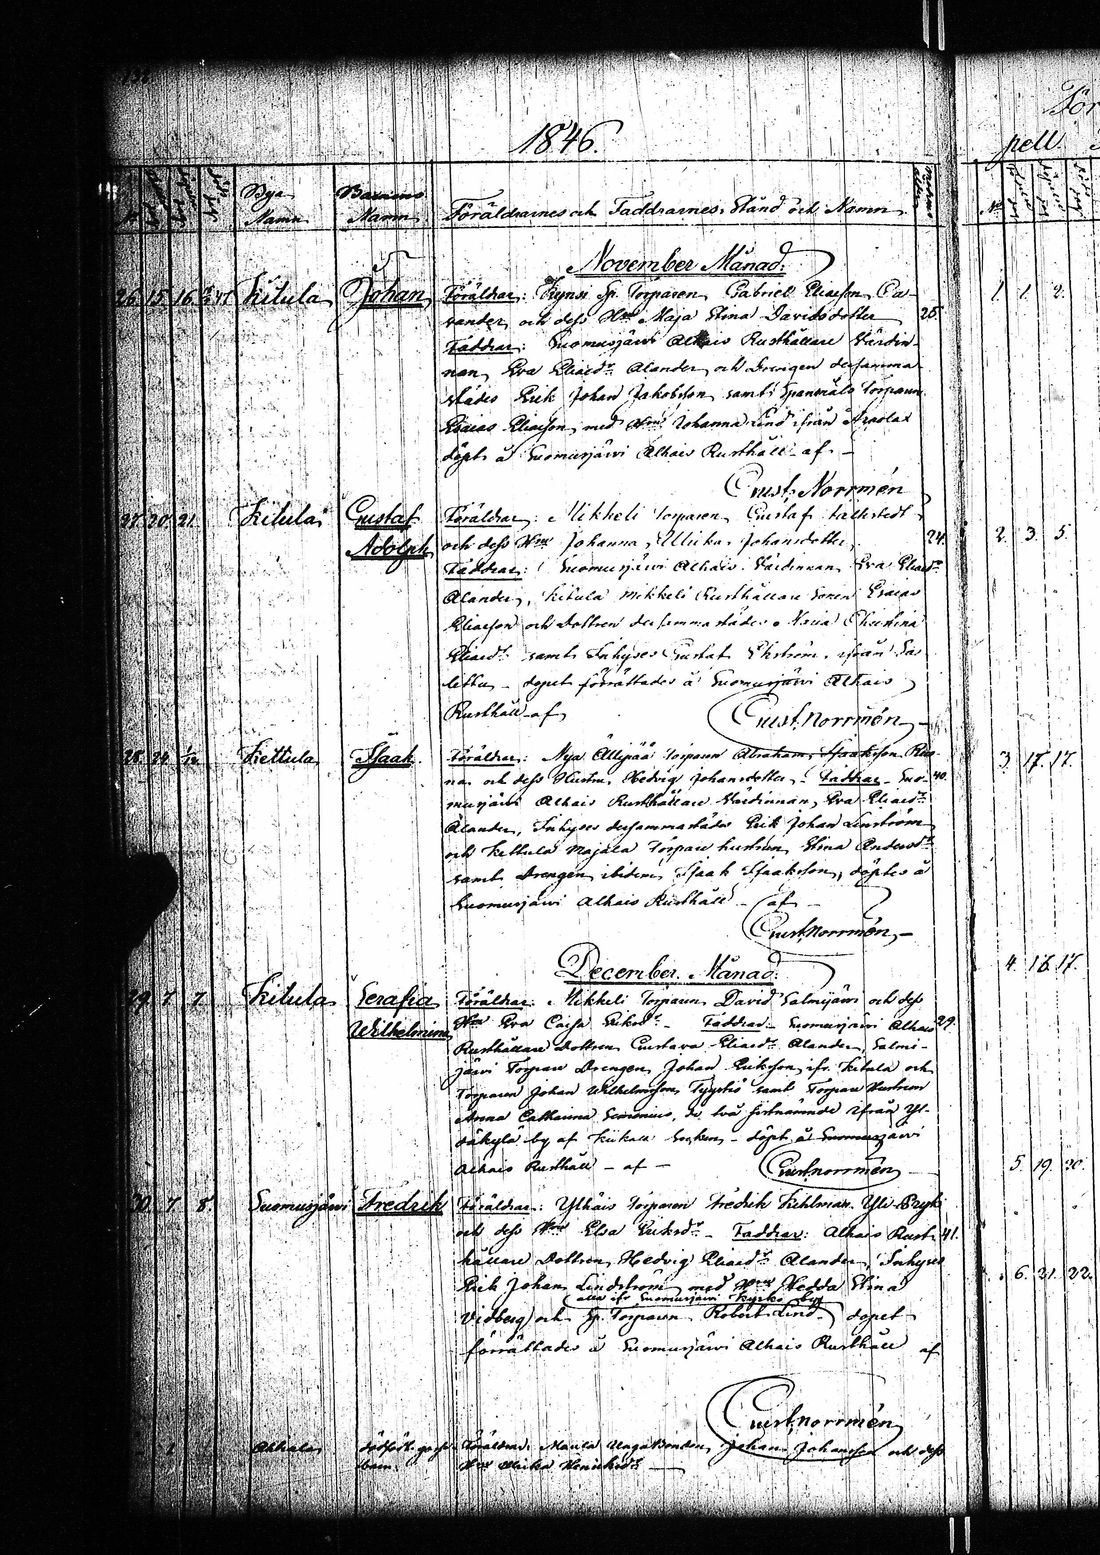 1846.
För
pell.
No
Bya Namn
Barnens Namn
Föräldrarnes och Faddrarnes, Stånd och Namn
November Månad.
26. 15. 16. Kitula Johan Föräldrar: Torparen, Gabriel Eliasson, Ca-
sander, och dess Hru Maja Stina Davidsdotter 25.
Faddrar: Suomusjärvi Alhais Rusthållare Värdin-
nan, Eva Eliasdr Alander, och Drengen dersamma
städes Erik Johan Jakobsson, samt Torparen
Elias Eliasson, med Hru Johanna Lind ifrån
döpt å Suomusjärvi Alhais Rusthåll – af –
Gust. Norrmén
27. 20. 21. Kitula Gustaf Föräldrar: Mikkeli Torparen, Gustaf
Adolph och dess Hru Johanna Ulrika Johansdotter 24.
Faddrar: Suomusjärvi Alhais Värdinnan, Eva Eliasdr
Alander, Kitula Mikkeli Rusthållare Sonen Esaias
Eliasson och Dottren dersammastädes Maria Christina
Eliasdr samt Inhyses Gustaf Ekström, ifrån
– dopet förrättades å Suomusjärvi Alhais
Rusthåll – af
Gust. Norrmén
28. 24. 1/12 Kettula Isaak. Föräldrar: Nya Torparen Abraham Isaaksson
och dess Hustru, Hedvig Johansdotter – Faddrar – Suo- 40.
musjärvi Alhais Rusthållare Värdinnan, Eva Eliasdr
Alander, Inhyses dersammastädes Erik Johan Lindström
och Kettula Majala Torpare hustrun, Stina Andersdr
samt Drengen ibidem Isaak Isaaksson, döptes å
Suomusjärvi Alhais Rusthåll – af –
Gust. Norrmén, –
December Månad.
29. 7. 7. Kitula Serafia Föräldrar: Mikkeli Torparen David Salmijärvi och dess
Wilhelmina Hru Eva Caisa Eriksdr – Faddrar – Suomusjärvi Alhais 29.
Rusthållare Dottren, Gustava Eliasdr Alander, Salmi-
järvi Torpare Drengen, Johan Eriksson, ifr. Kitula och
Torparen Johan Wilhelmsson, samt Torpare Hustrun
Anna Catharina de två sistnämnde ifrån Yl-
by af Kiikala Socken – döpt å Suomusjärvi
Alhais Rusthåll – af –
Gust. Norrmén
30. 7. 8. Suomusjärvi Fredrik Föräldrar: Ylhäis Torparen Fredrik
och dess Hru Elsa Eriksdr – Faddrar: Alhais Rust- 41.
hållare Dottren, Hedvig Eliasdr Alander, Inhyses
Erik Johan Lindström, med Hru Hedda Stina
alla ifr. Suomusjärvi Kyrko by
Vidberg och Sp. Torparen Robert Lind – dopet
förrättades å Suomusjärvi Alhais Rusthåll af
Gust. Norrmén
dödfödt gosse- Föräldrar: Unga Bonden, Johan Johansson och dess
barn. Hru Ulrika Henriksdr –
1. 1. 2.
2. 3. 5.
3. 17. 17.
4. 16. 17.
5. 19. 20.
6. 21. 22.